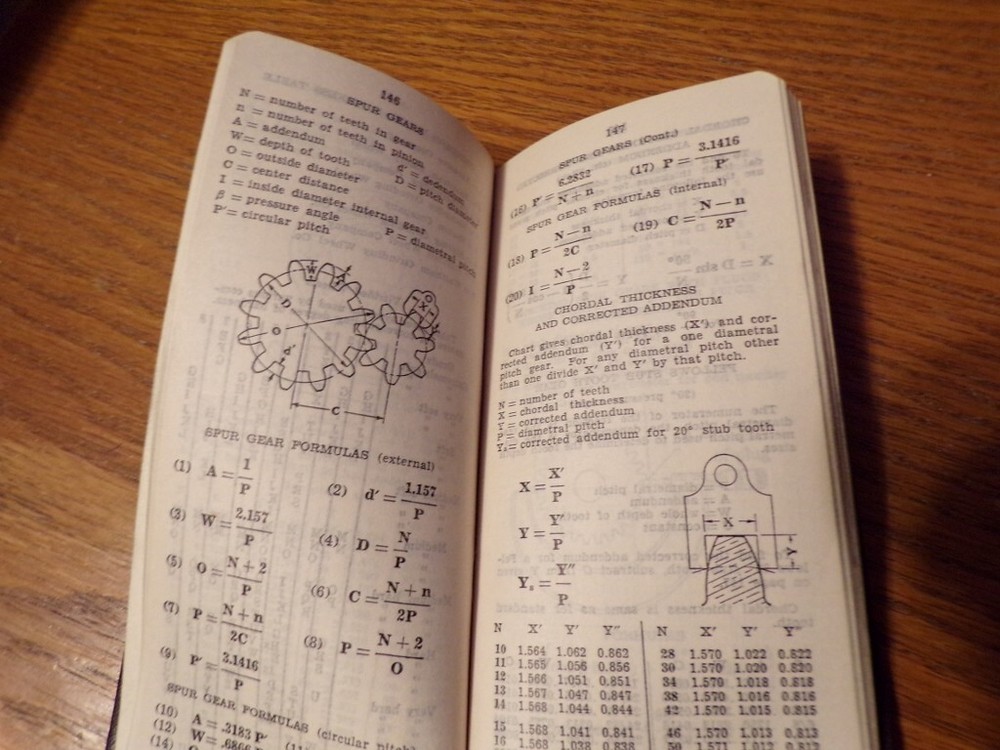 146
SPUR GEARS
N = number of teeth in gear
n = number of teeth in pinion
A = addendum d' = dedendum
W = depth of tooth D = pitch diameter
O = outside diameter
C = center distance
I = inside diameter internal gear
β = pressure angle P = diametral pitch
P' = circular pitch
W
D
O
d'
X
C
SPUR GEAR FORMULAS (external)
(1) A = 1/P (2) d' = 1.157/P
(3) W = 2.157/P (4) D = N/P
(5) O = N + 2/P (6) C = N + n/2P
(7) P = N + n/2C (8) P = N + 2/O
(9) P' = 3.1416/P
SPUR GEAR FORMULAS (circular pitch)
(10) A = .3183 P'
(12) W = .6866 P'
(14)
147
SPUR GEARS (Cont.)
(16) P' = 6.2832/N + n (17) P = 3.1416/P'
SPUR GEAR FORMULAS (internal)
(18) P = N — n/2C (19) C = N — n/2P
(20) I = N — 2/P
CHORDAL THICKNESS
AND CORRECTED ADDENDUM
Chart gives chordal thickness (X') and cor-
rected addendum (Y') for a one diametral
pitch gear. For any diametral pitch other
than one divide X' and Y' by that pitch.
N = number of teeth
X = chordal thickness
Y = corrected addendum
P = diametral pitch
Ys = corrected addendum for 20° stub tooth
X = X'/P
Y = Y'/P
Ys = Y"/P
X
Y
N X' Y' Y" N X' Y' Y"
10 1.564 1.062 0.862 28 1.570 1.022 0.822
11 1.565 1.056 0.856 30 1.570 1.020 0.820
12 1.566 1.051 0.851 34 1.570 1.018 0.818
13 1.567 1.047 0.847 38 1.570 1.016 0.816
14 1.568 1.044 0.844 42 1.570 1.015 0.815
15 1.568 1.041 0.841 46 1.570 1.013 0.813
16 1.568 1.038 0.838 50 1.571 1.012 0.812